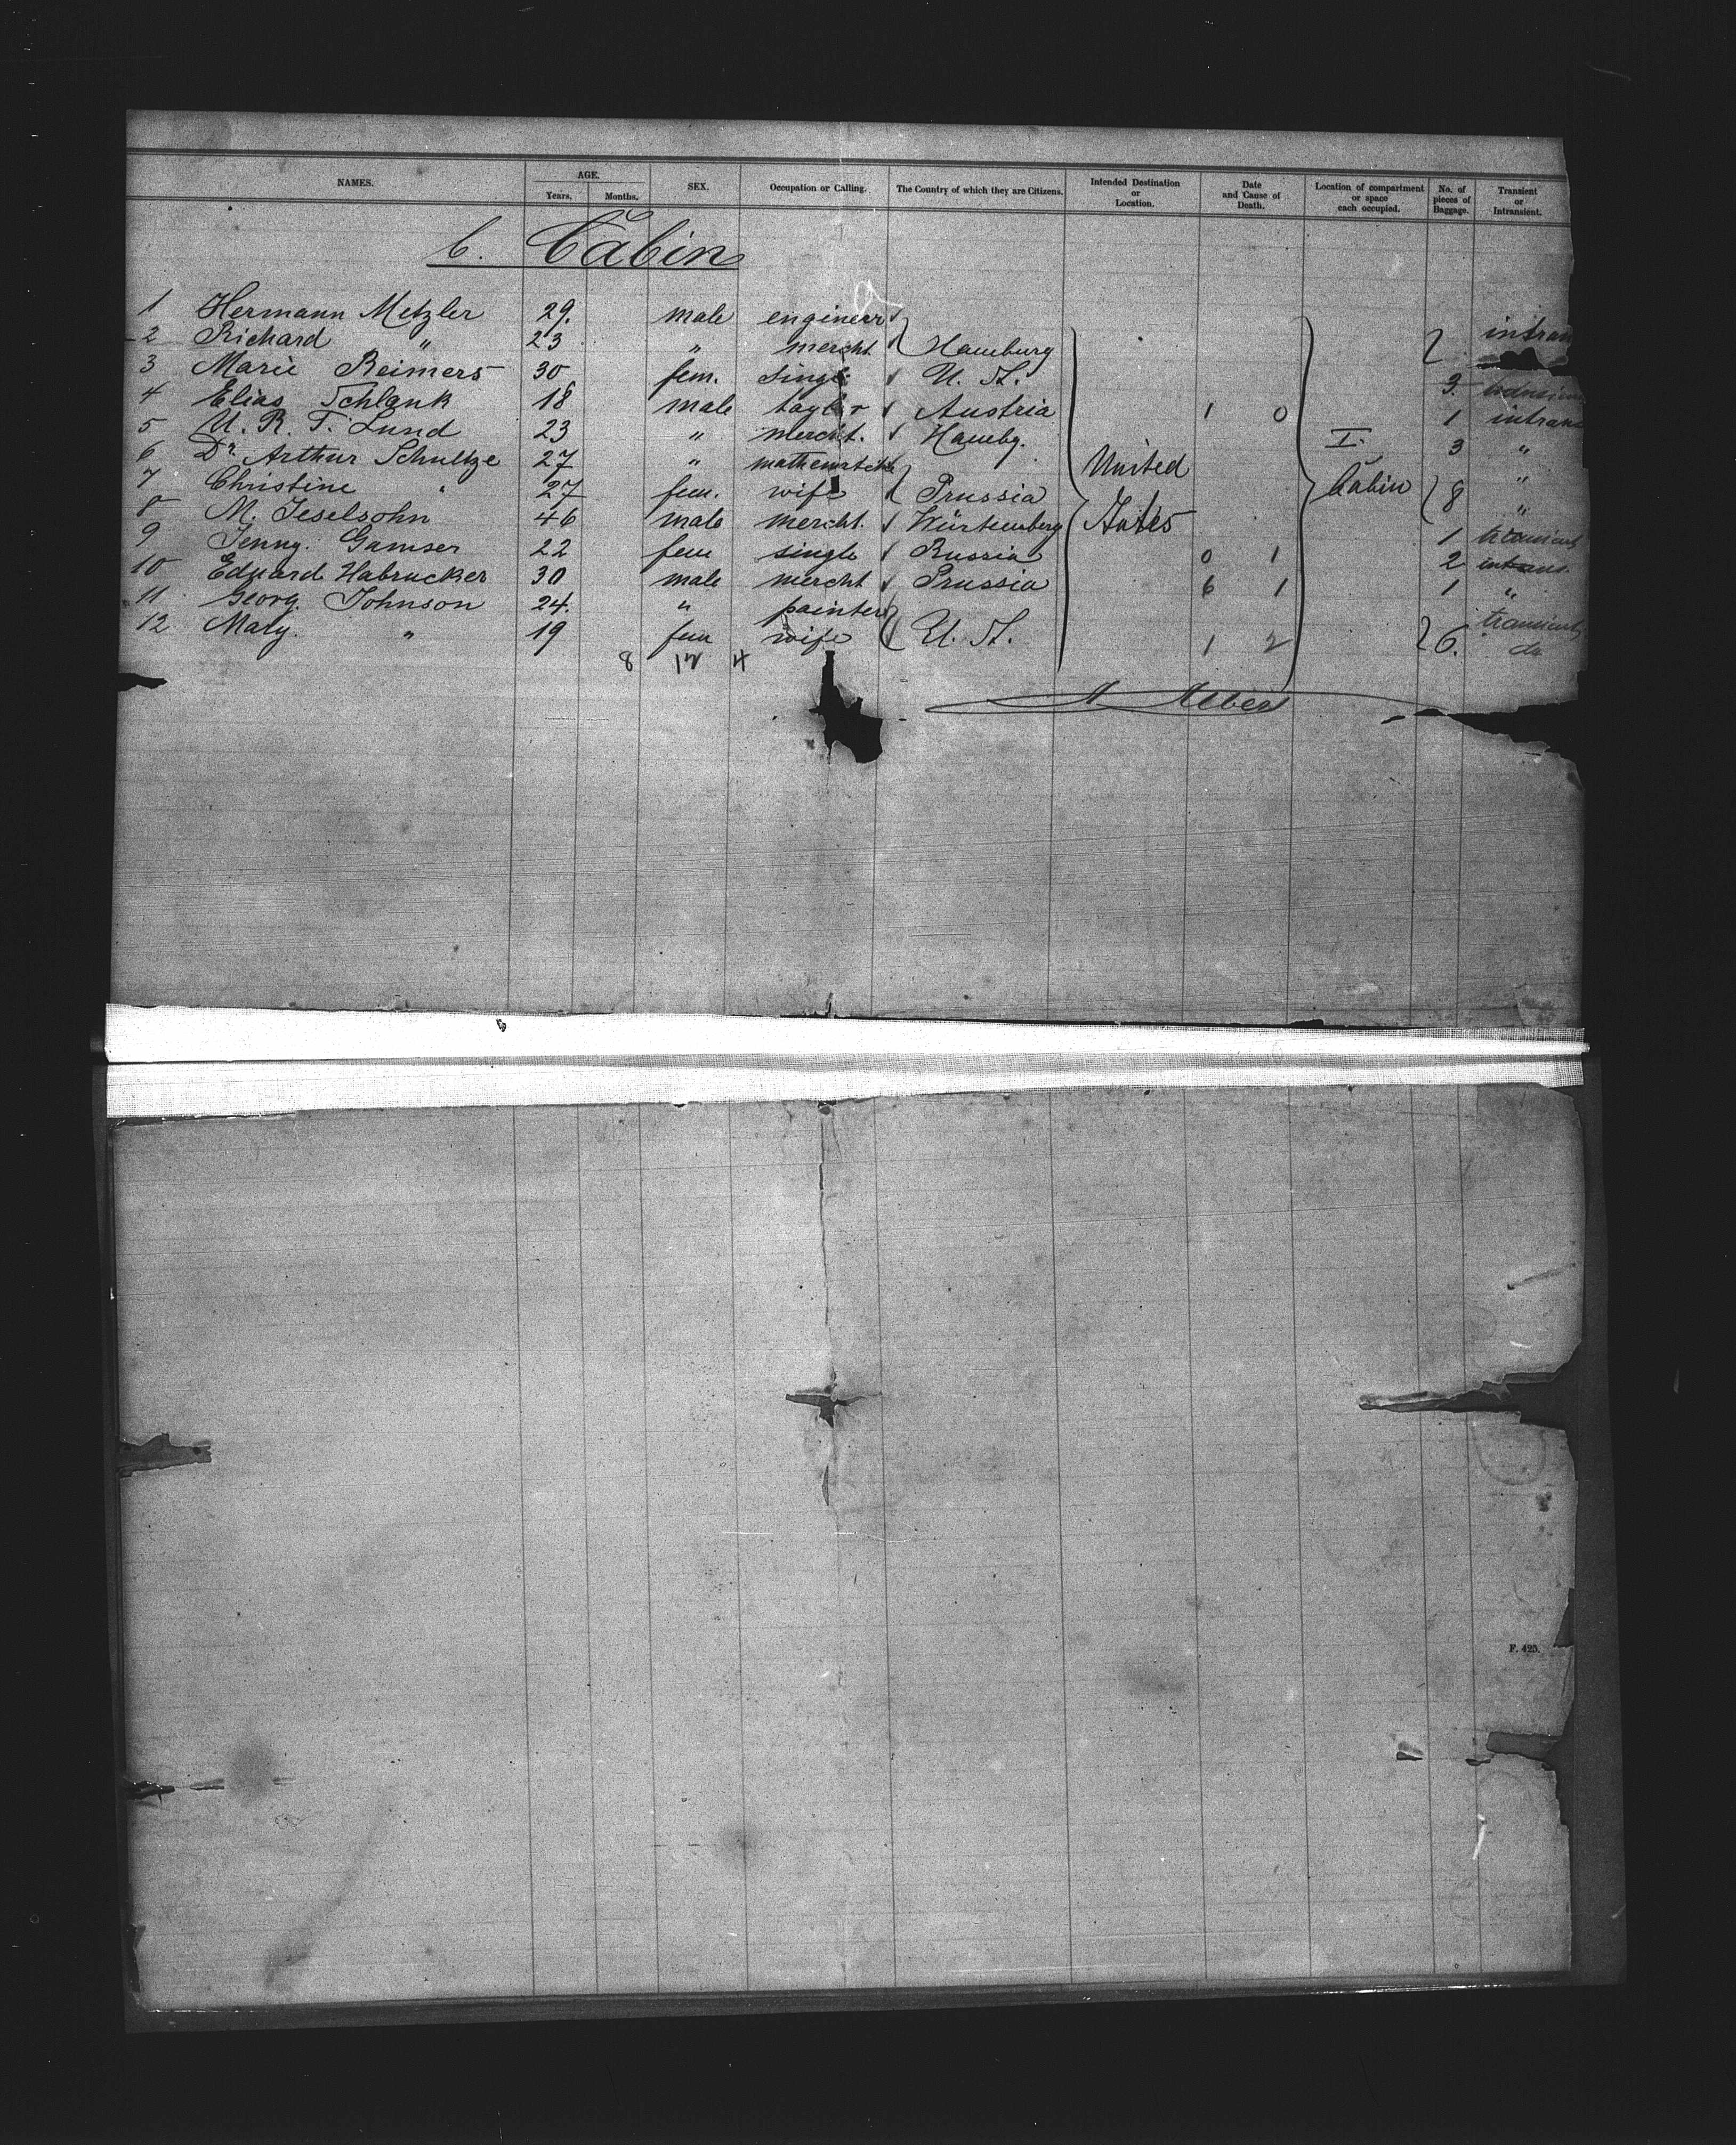 NAMES. AGE. Years, Months. SEX. Occupation or Calling. The Country of which they are Citizens. Intended Destination or Location. Date and Cause of Death. Location of compartment or space each occupied. No. of pieces of Baggage. Transient or Intransient.
6. Cabin
1 Hermann Metzler 29. male engineer
2 Richard " 23 " mercht Hamburg intran
3 Marie Reimers 30 fem. single U. St. 3.
4 Elias Schlank 18 male taylor Austria 1 0 1 intran
5 U. R. T. Lund 23 " mercht. Hambg. I. 3 "
6 Dr. Arthur Schultze 27 " United "
7 Christine " 27 fem. wife Prussia Cabin 8 "
8 M. Jeselsohn 46 male mercht. Würtemberg States 1 transient
9 Jenny Gamser 22 fem single Russia 0 1 2 intrans.
10 Eduard Habrucker 30 male mercht Prussia 6 1 1 "
11 Georg. Johnson 24. " painter transient
12 Mary. " 19 fem wife U. St. 1 2 6. do
8 12 4
F. 425.